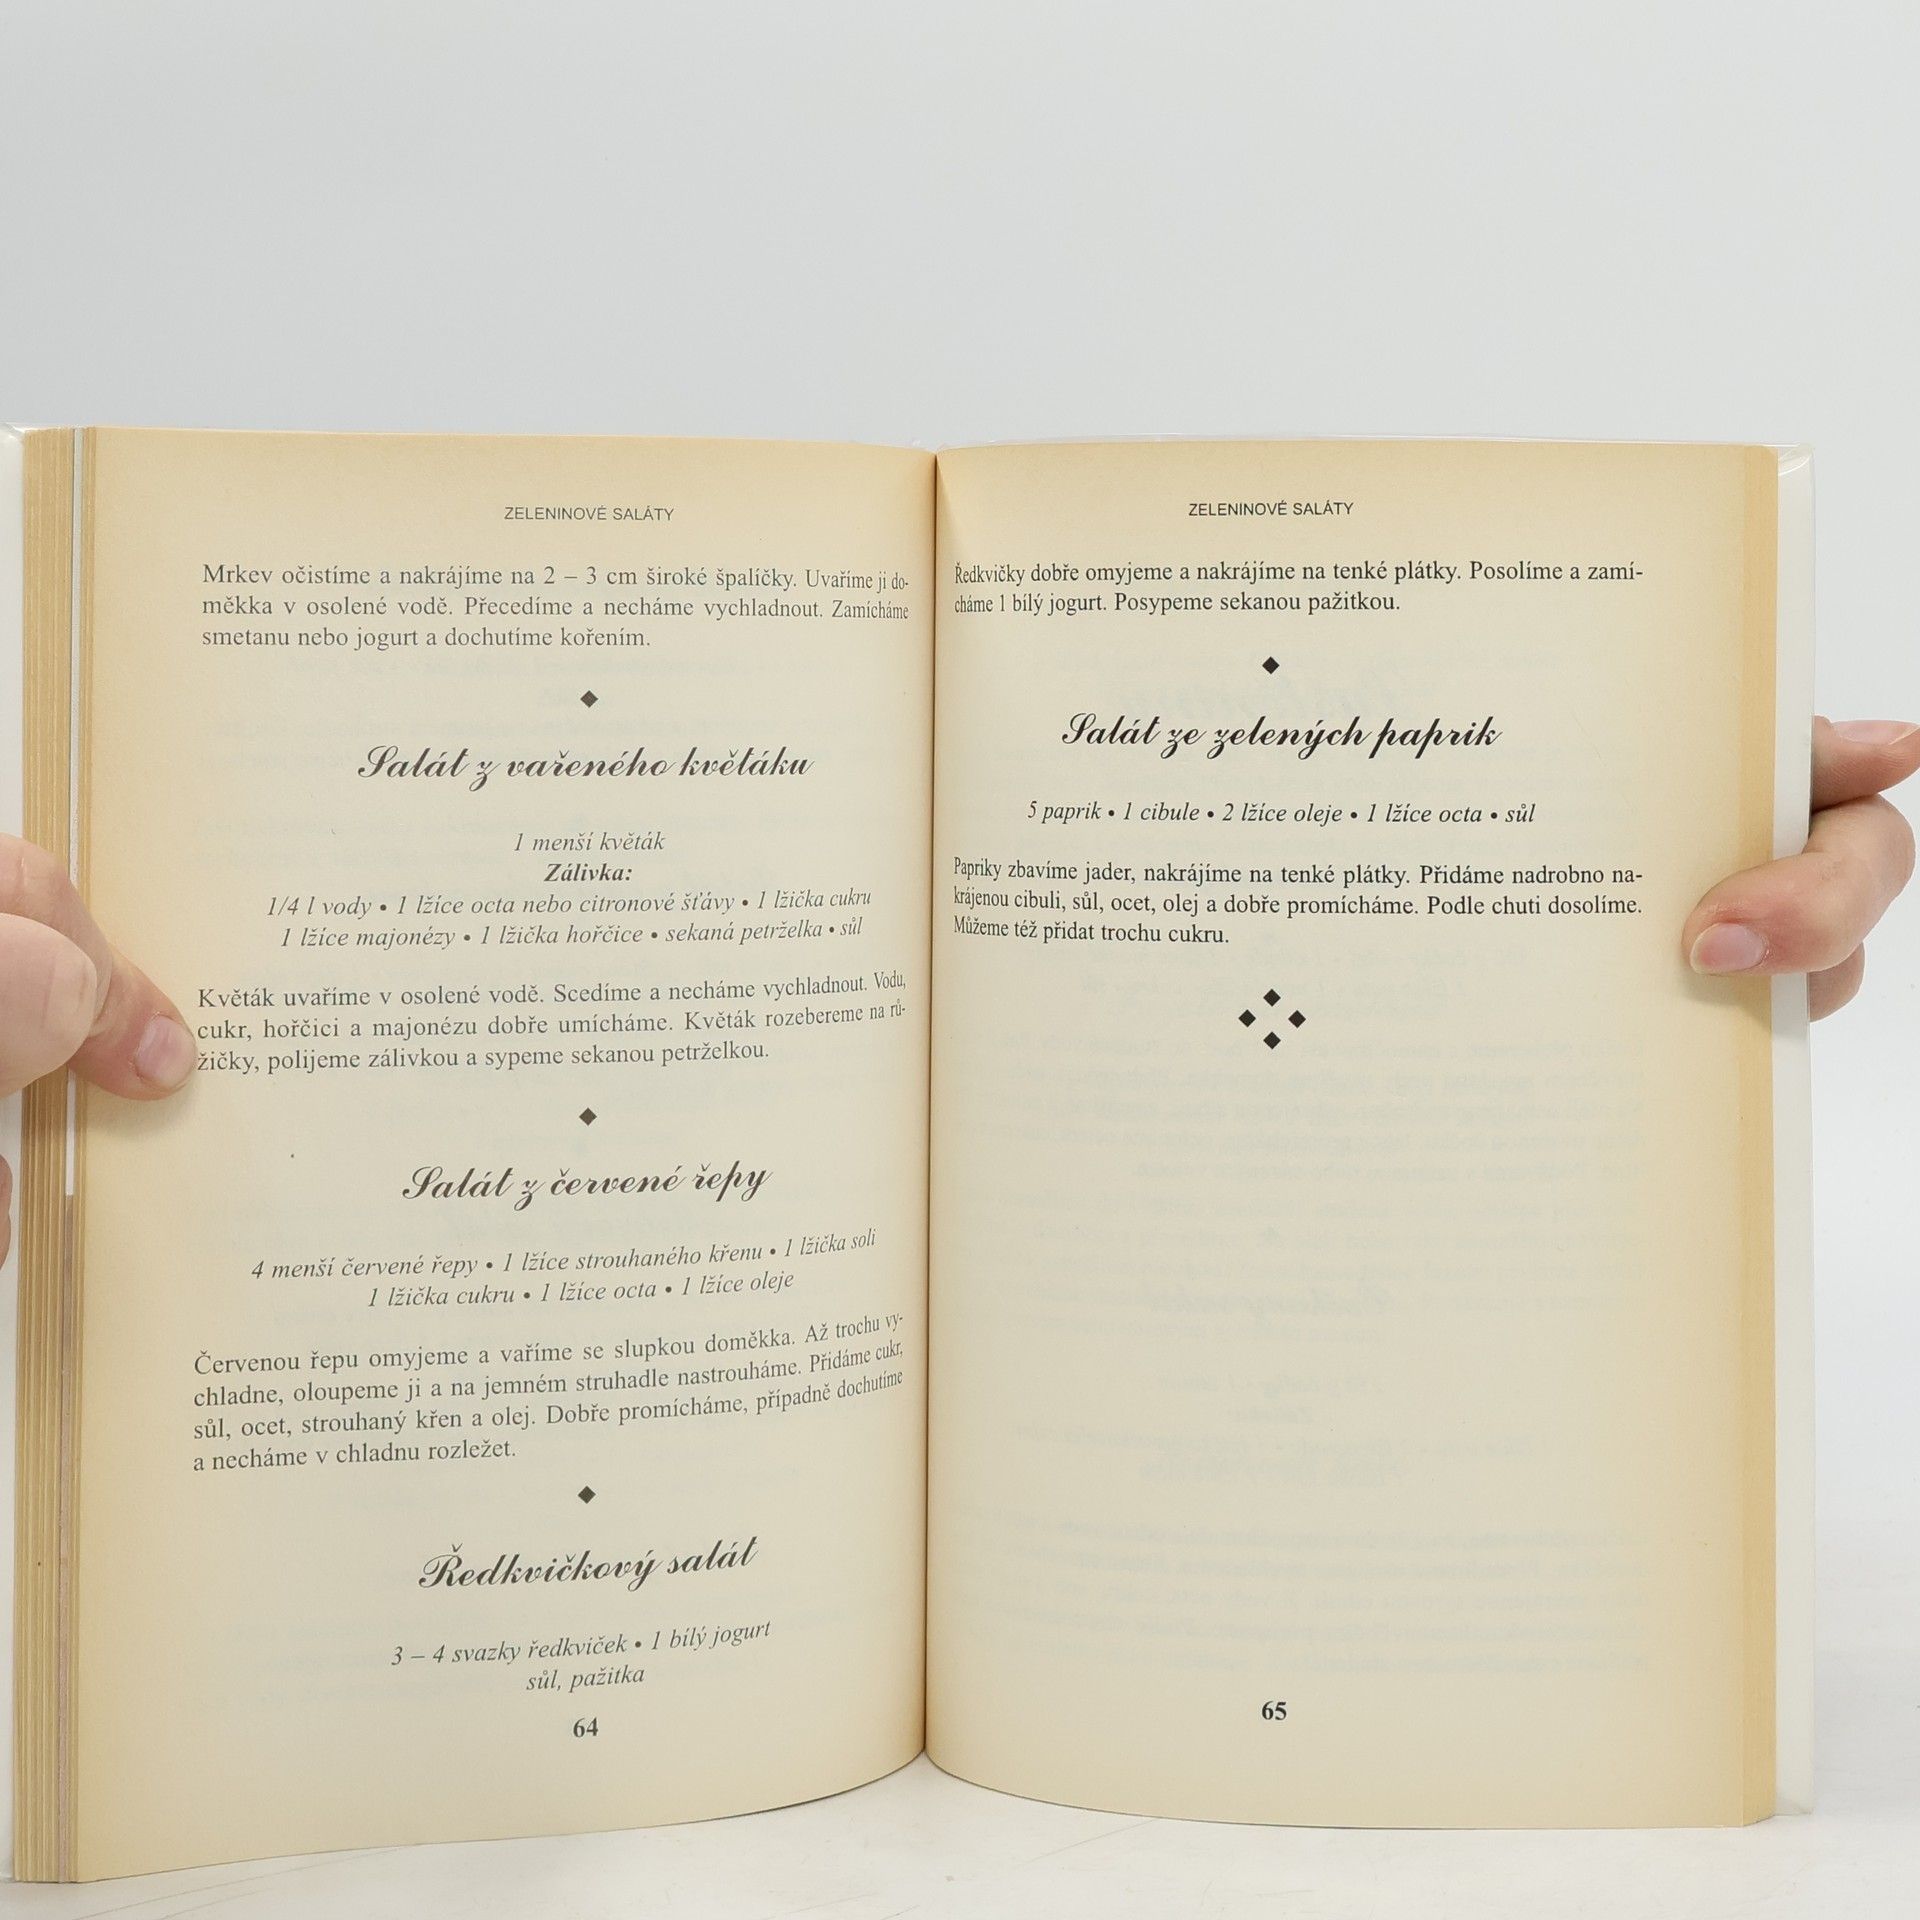 ZELENINOVÉ SALÁTY
Mrkev očistíme a nakrájíme na 2 – 3 cm široké špalíčky. Uvaříme ji do-
měkka v osolené vodě. Přecedíme a necháme vychladnout. Zamícháme
smetanu nebo jogurt a dochutíme kořením.
Salát z vařeného květáku
1 menší květák
Zálivka:
1/4 l vody • 1 lžíce octa nebo citronové šťávy • 1 lžička cukru
1 lžíce majonézy • 1 lžička hořčice • sekaná petrželka • sůl
Květák uvaříme v osolené vodě. Scedíme a necháme vychladnout. Vodu,
cukr, hořčici a majonézu dobře umícháme. Květák rozebereme na rů-
žičky, polijeme zálivkou a sypeme sekanou petrželkou.
Salát z červené řepy
4 menší červené řepy • 1 lžíce strouhaného křenu • 1 lžička soli
1 lžička cukru • 1 lžíce octa • 1 lžíce oleje
Červenou řepu omyjeme a vaříme se slupkou doměkka. Až trochu vy-
chladne, oloupeme ji a na jemném struhadle nastrouháme. Přidáme cukr,
sůl, ocet, strouhaný křen a olej. Dobře promícháme, případně dochutíme
a necháme v chladnu rozležet.
Ředkvičkový salát
3 – 4 svazky ředkviček • 1 bílý jogurt
sůl, pažitka
64
ZELENINOVÉ SALÁTY
Ředkvičky dobře omyjeme a nakrájíme na tenké plátky. Posolíme a zamí-
cháme 1 bílý jogurt. Posypeme sekanou pažitkou.
Salát ze zelených paprik
5 paprik • 1 cibule • 2 lžíce oleje • 1 lžíce octa • sůl
Papriky zbavíme jader, nakrájíme na tenké plátky. Přidáme nadrobno na-
krájenou cibuli, sůl, ocet, olej a dobře promícháme. Podle chuti dosolíme.
Můžeme též přidat trochu cukru.
65